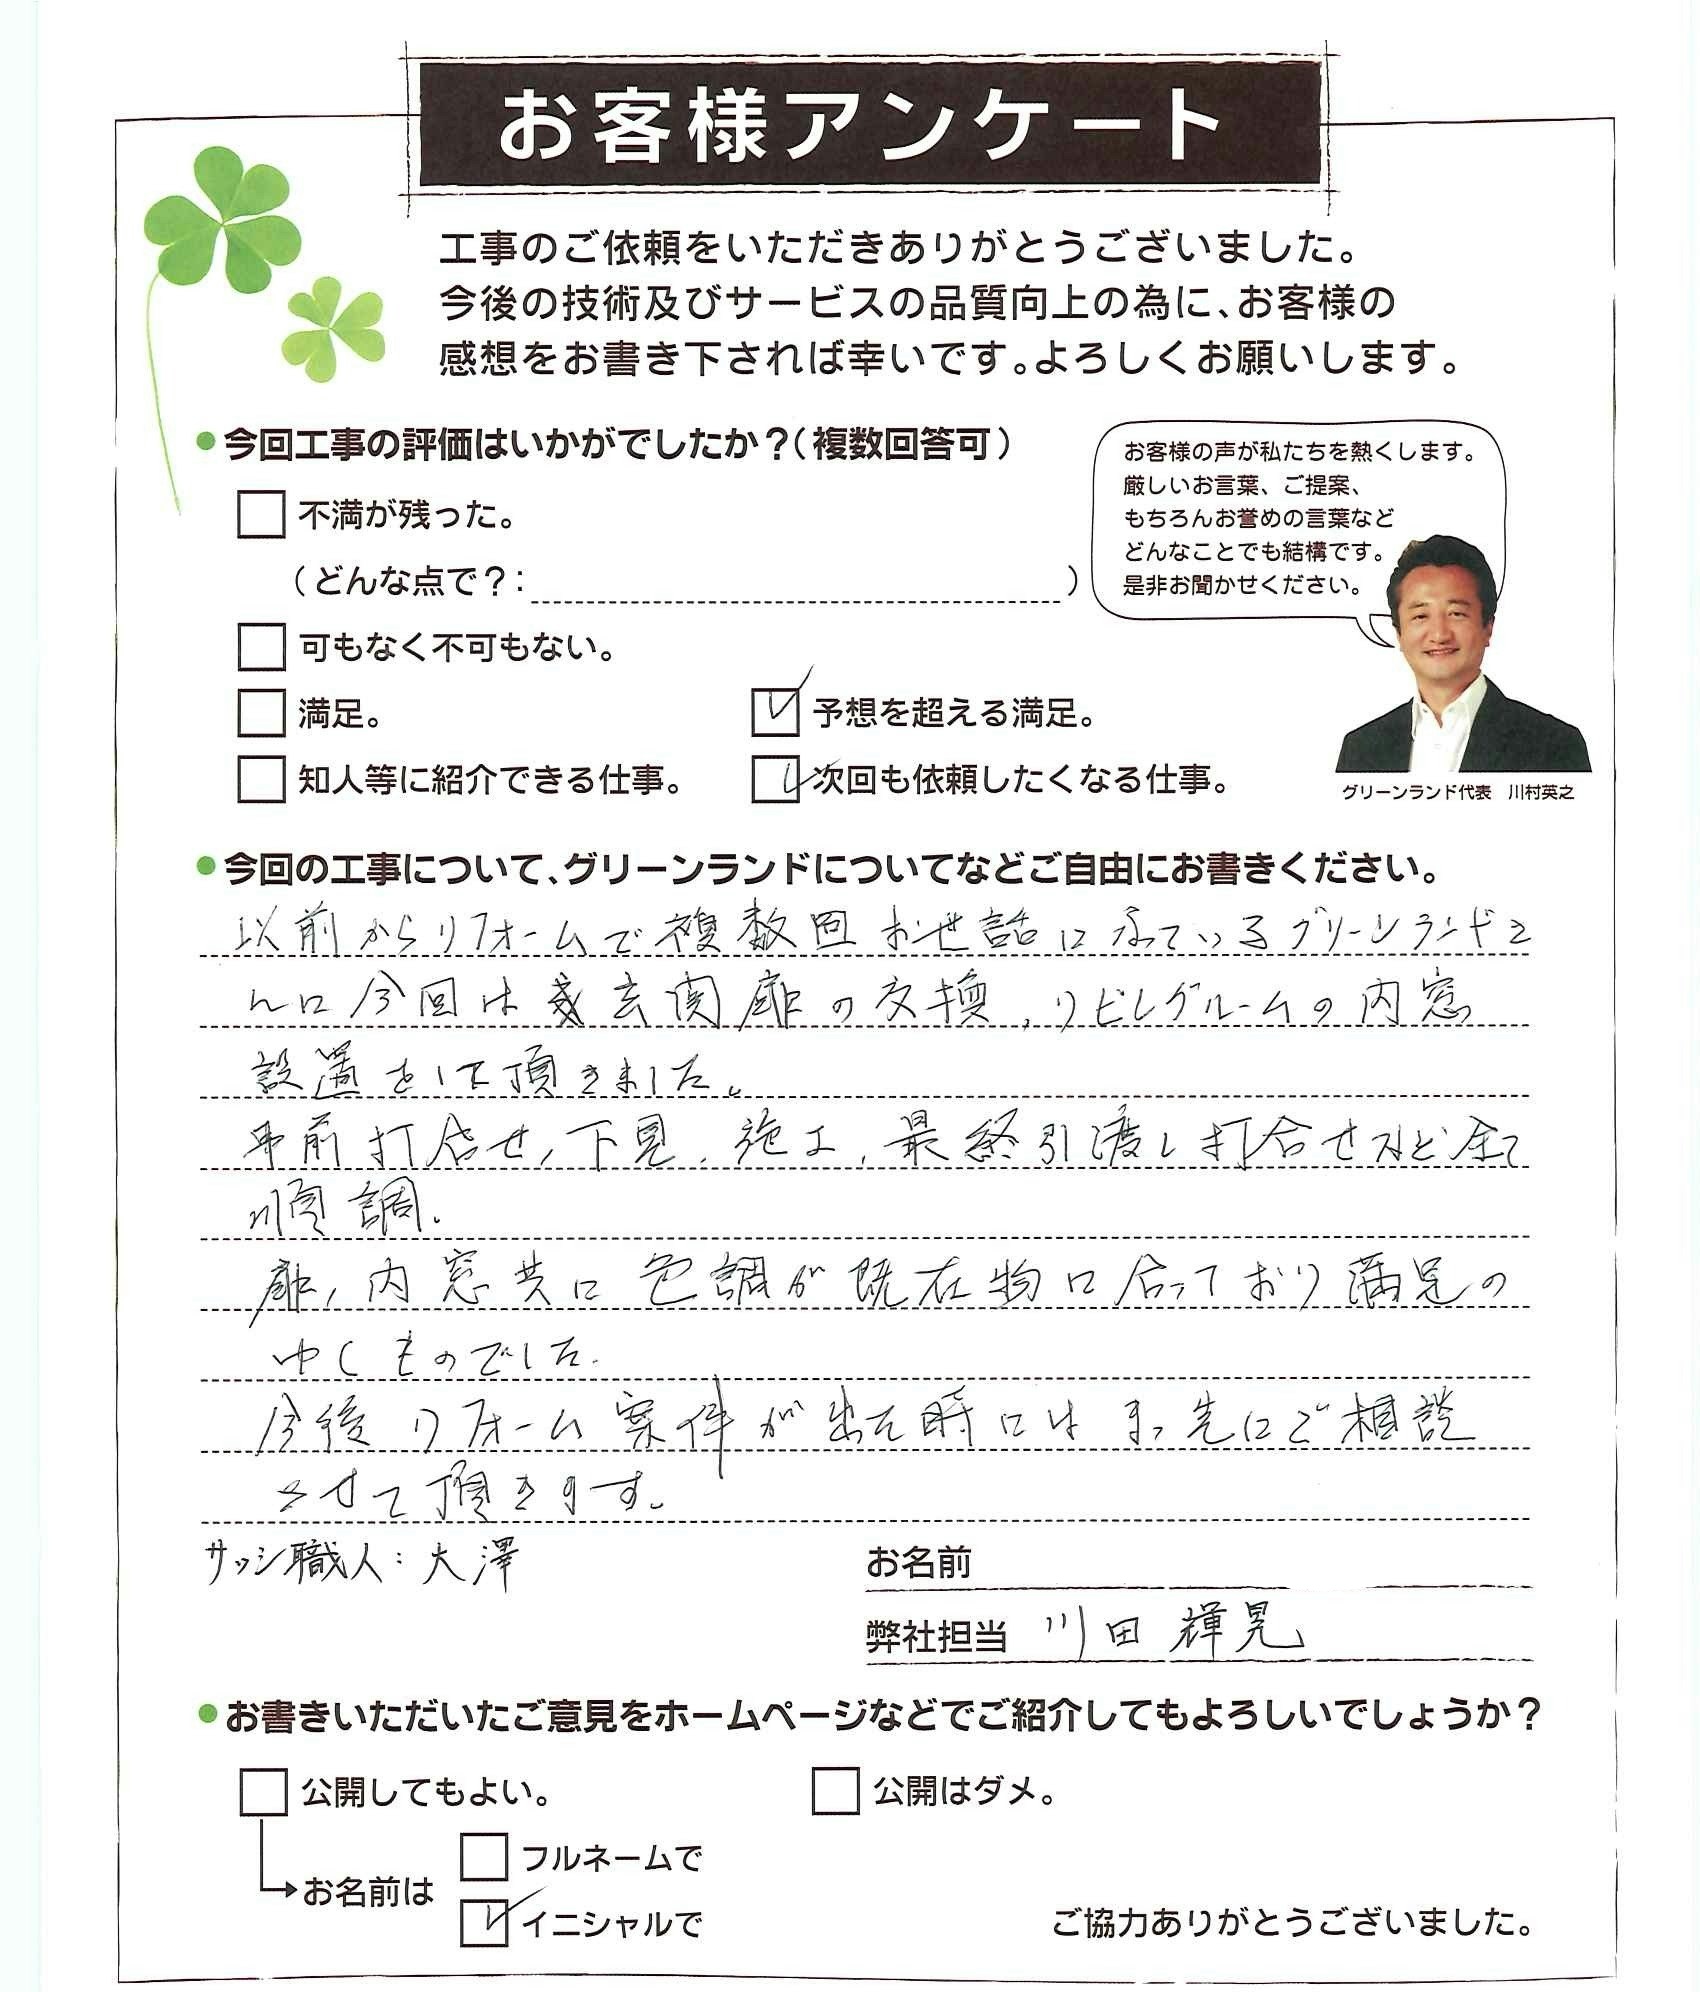 お客様アンケート
工事のご依頼をいただきありがとうございました。
今後の技術及びサービスの品質向上の為に、お客様の
感想をお書き下されば幸いです。よろしくお願いします。
●今回工事の評価はいかがでしたか？（複数回答可）
不満が残った。
（どんな点で？：　　　）
可もなく不可もない。
満足。
予想を超える満足。
知人等に紹介できる仕事。
次回も依頼したくなる仕事。
お客様の声が私たちを熱くします。
厳しいお言葉、ご提案、
もちろんお誉めの言葉など
どんなことでも結構です。
是非お聞かせください。
グリーンランド代表　川村英之
●今回の工事について、グリーンランドについてなどご自由にお書きください。
以前からリフォームで複数回お世話になっているグリーンランドさ
んに今回は玄関扉の交換，リビングルームの内窓
設置をして頂きました。
事前打合せ，下見，施工，最終引渡し打合せなど全て
順調．
扉，内窓共に色調が既存物に合っており満足の
ゆくものでした．
今後リフォーム案件が出た時にはまっ先にご相談
させて頂きます。
サッシ職人：大澤
お名前
弊社担当　川田 輝晃
●お書きいただいたご意見をホームページなどでご紹介してもよろしいでしょうか？
公開してもよい。
公開はダメ。
お名前は
フルネームで
イニシャルで
ご協力ありがとうございました。